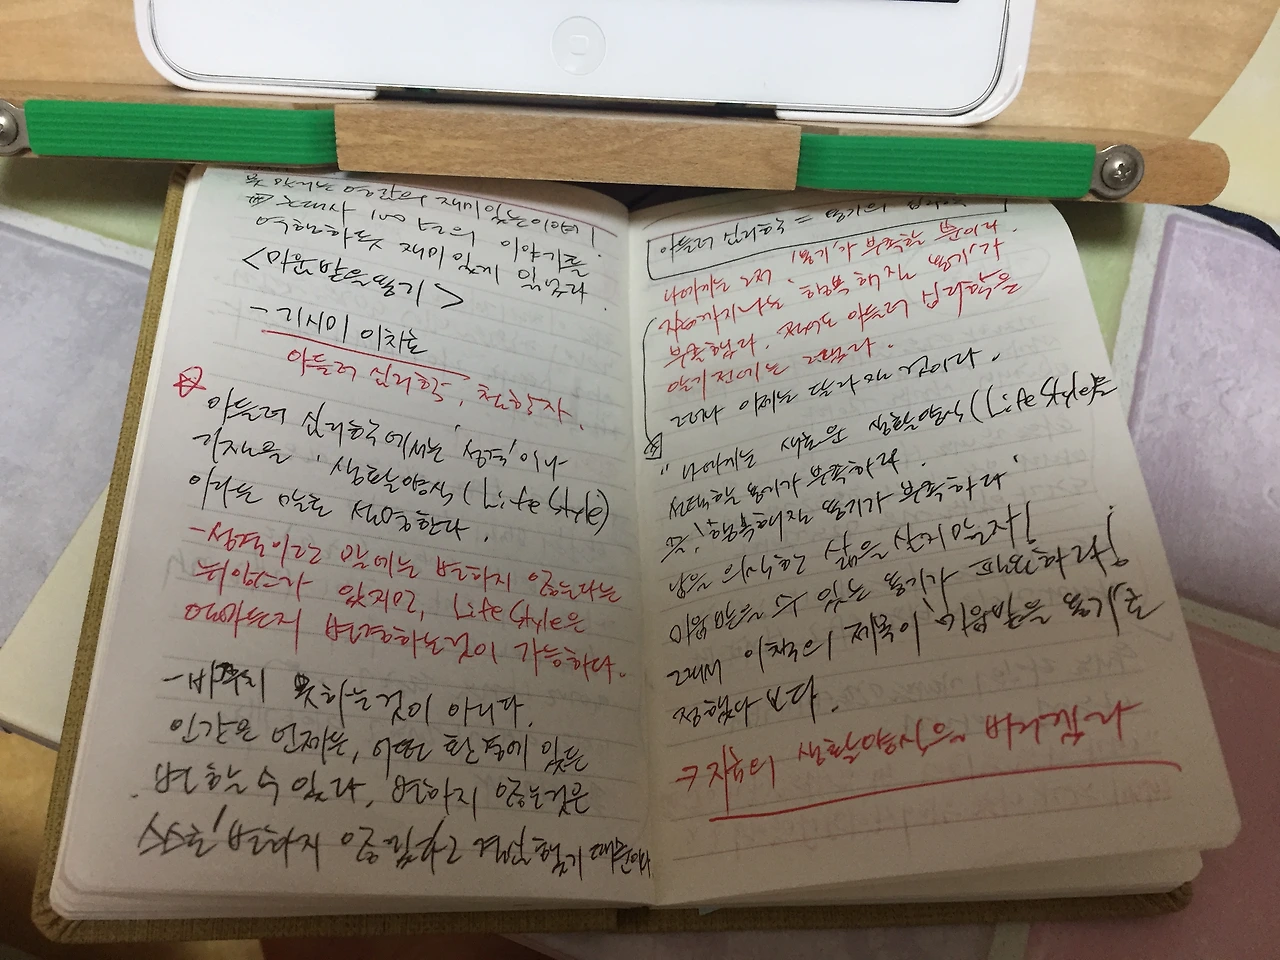 재미있는이여!
이야기를
재미있게 읽었다
<미움받을용기>
- 기시미 이치로
아들러 심리학, 철학자.
아들러 심리학에서는 '성격'이나
기질을 '생활양식(Life Style)
이라는 말로 설명한다.
-성격이란 말에는 변하지 않는다는
뉘앙스가 있지만, Life Style은
얼마든지 변경하는것이 가능하다.
-바뀌지 못하는것이 아니다.
인간은 언제든, 어떤 환경에 있든
변할 수 있다, 변하지 않는것은
스스로 '변하지 않을'거라고 결심했기 때문이다
아들러 심리학 = 용기의 심리학
나에게는 그저 '용기'가 부족할 뿐이다.
지금까지 나는 행복해질 용기가
부족했다. 적어도 아들러 심리학을
알기전에는 그랬다.
그러나 이제는 달라질 것이다.
"나에게는 새로운 생활양식(Life Style)을
선택할 용기가 부족하다.
즉! 행복해질 용기가 부족하다'
남을 의식하는 삶을 살지 말자!
미움받을 수 있는 용기가 필요하다!
그래서 이책의 제목이 '미움받을 용기'로
정했나 보다.
지금의 생활양식을 버리겠다